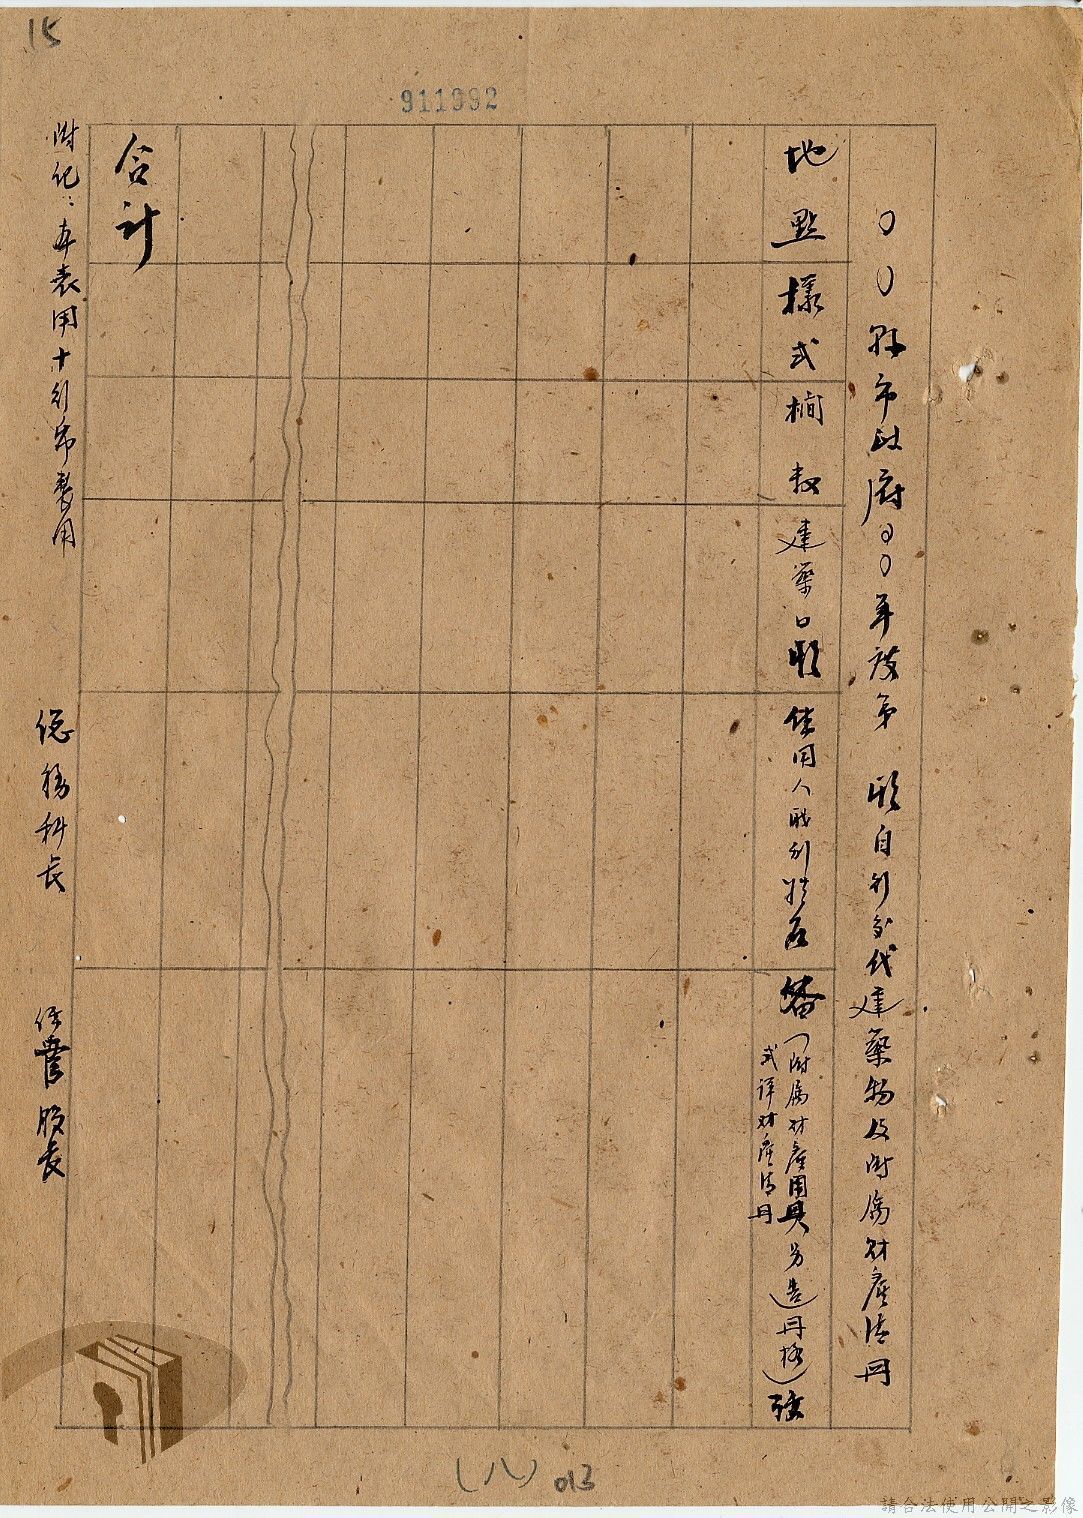 15
911992
〇〇縣市政府〇〇年度第 期自行交代建築物及附屬財產清冊
地點
樣式
橺数
建築日期
使用人職別姓名
備(附屬財產用具另造冊格式詳財產清冊)
合計
附記：本表用十行希製用
總務科長
股長
(八) 013
請合法使用公開之影像